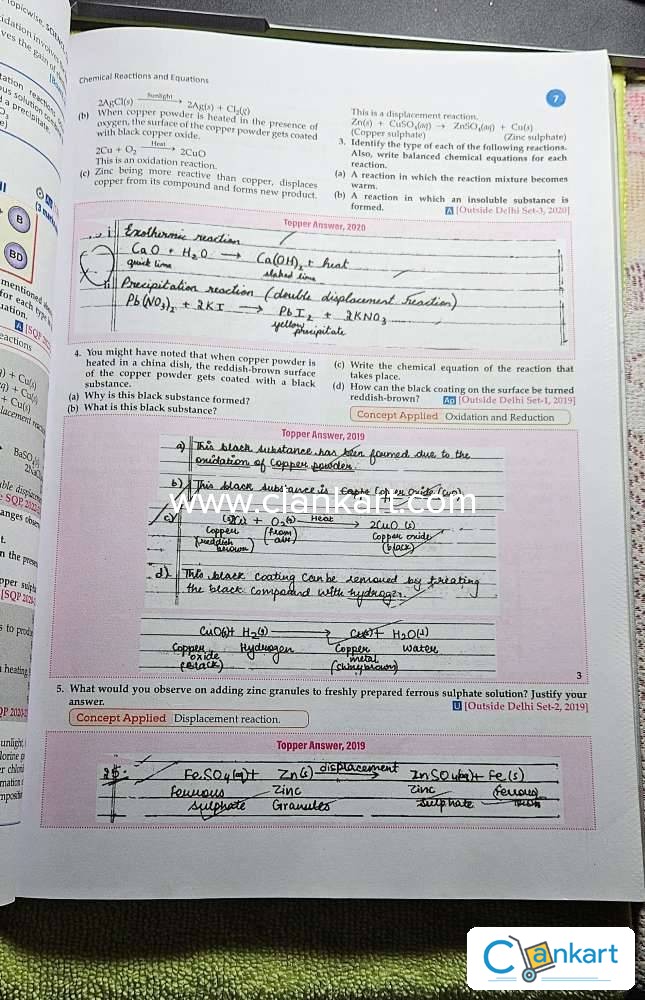 Chemical Reactions and Equations
7
2AgCl(s) Sunlight→ 2Ag(s) + Cl₂(g)
(b) When copper powder is heated in the presence of
oxygen, the surface of the copper powder gets coated
with black copper oxide.
2Cu + O₂ Heat→ 2CuO
This is an oxidation reaction.
(c) Zinc being more reactive than copper, displaces
copper from its compound and forms new product.
This is a displacement reaction.
Zn(s) + CuSO₄(aq) → ZnSO₄(aq) + Cu(s)
(Copper sulphate) (Zinc sulphate)
3. Identify the type of each of the following reactions.
Also, write balanced chemical equations for each
reaction.
(a) A reaction in which the reaction mixture becomes
warm.
(b) A reaction in which an insoluble substance is
formed. A [Outside Delhi Set-3, 2020]
Topper Answer, 2020
i Exothermic reaction
CaO + H₂O → Ca(OH)₂ + heat
quick lime slaked lime
ii Precipitation reaction (double displacement reaction)
Pb(NO₃)₂ + 2KI → PbI₂ + 2KNO₃
yellow precipitate
4. You might have noted that when copper powder is
heated in a china dish, the reddish-brown surface
of the copper powder gets coated with a black
substance.
(a) Why is this black substance formed?
(b) What is this black substance?
(c) Write the chemical equation of the reaction that
takes place.
(d) How can the black coating on the surface be turned
reddish-brown? Ap [Outside Delhi Set-1, 2019]
Concept Applied Oxidation and Reduction
Topper Answer, 2019
a) This black substance has been formed due to the
oxidation of copper powder.
b) This black substance is Copper Oxide (CuO)
www.clankart.com
c) 2Cu + O₂(g) Heat→ 2CuO (s)
Copper (from Copper oxide
(reddish brown) air) (black)
d) This black coating can be removed by treating
the black compound with hydrogen.
CuO(s) + H₂(g) → Cu(s) + H₂O(l)
Copper Hydrogen Copper Water
oxide metal
(Black) (shiny brown)
3
5. What would you observe on adding zinc granules to freshly prepared ferrous sulphate solution? Justify your
answer. U [Outside Delhi Set-2, 2019]
Concept Applied Displacement reaction.
Topper Answer, 2019
FeSO₄(aq) + Zn(s) displacement→ ZnSO₄(aq) + Fe(s)
Ferrous Zinc Zinc (ferrous)
sulphate Granules sulphate
Clankart